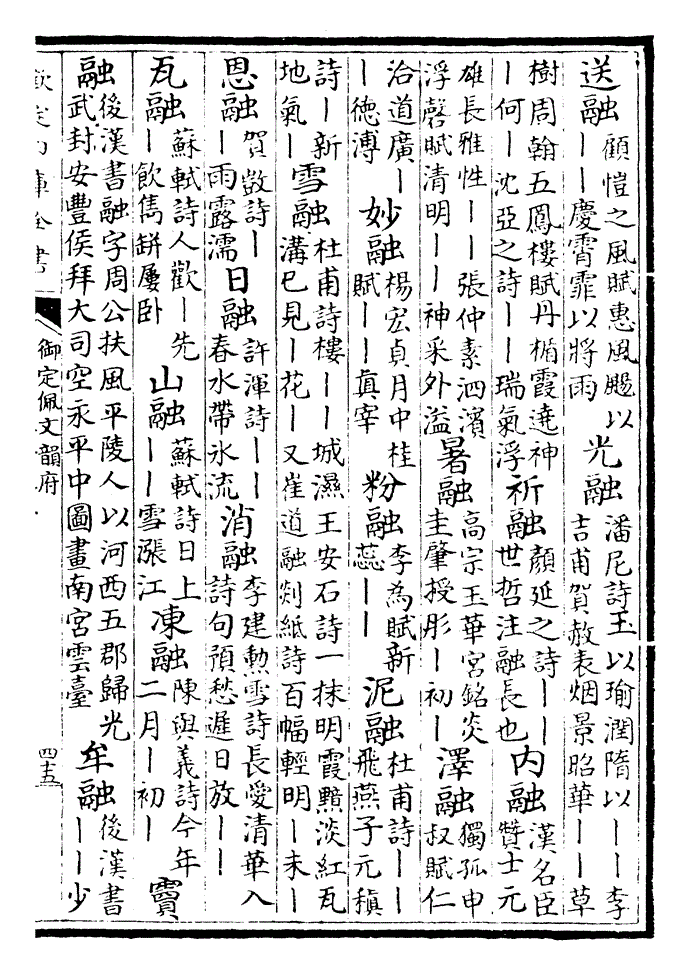 送融顧愷之風賦惠風颺以｜｜慶霄霏以將雨光融潘尼詩玉以瑜潤隋以｜｜李吉甫賀赦表烟景昭華｜｜草
樹周翰五鳳樓賦丹楯霞遶神｜何｜沈亞之詩｜｜瑞氣浮祈融顏延之詩｜｜世哲注融長也内融漢名臣贊士元
雄長雅性｜｜張仲素泗濱浮磬賦清明｜｜神采外溢暑融高宗玉華宮銘炎圭肇授彤｜初｜澤融獨孤申叔賦仁
洽道廣｜｜德溥妙融楊宏貞月中桂賦｜｜真宰粉融李為賦新蕊｜｜泥融杜甫詩｜｜飛燕子元稹
詩｜新地氣｜雪融杜甫詩樓｜｜城濕王安石詩一抹明霞黯淡紅瓦溝已見｜花｜又崔道融剡紙詩百幅輕明｜未｜
恩融賀敳詩｜｜雨露濡日融許渾詩｜｜春水帶氷流消融李建勲雪詩長愛清華入詩句預愁遲日放｜｜
瓦融蘇軾詩人歡｜先｜飲雋缾屢卧山融蘇軾詩日上｜｜雪漲江凍融陳與義詩今年二月｜初｜竇
融後漢書融字周公扶風平陵人以河西五郡歸光武封安豐侯拜大司空永平中圖畫南宮雲臺牟融後漢書｜｜少
欽定四庫全書
御定佩文韻府
四十五